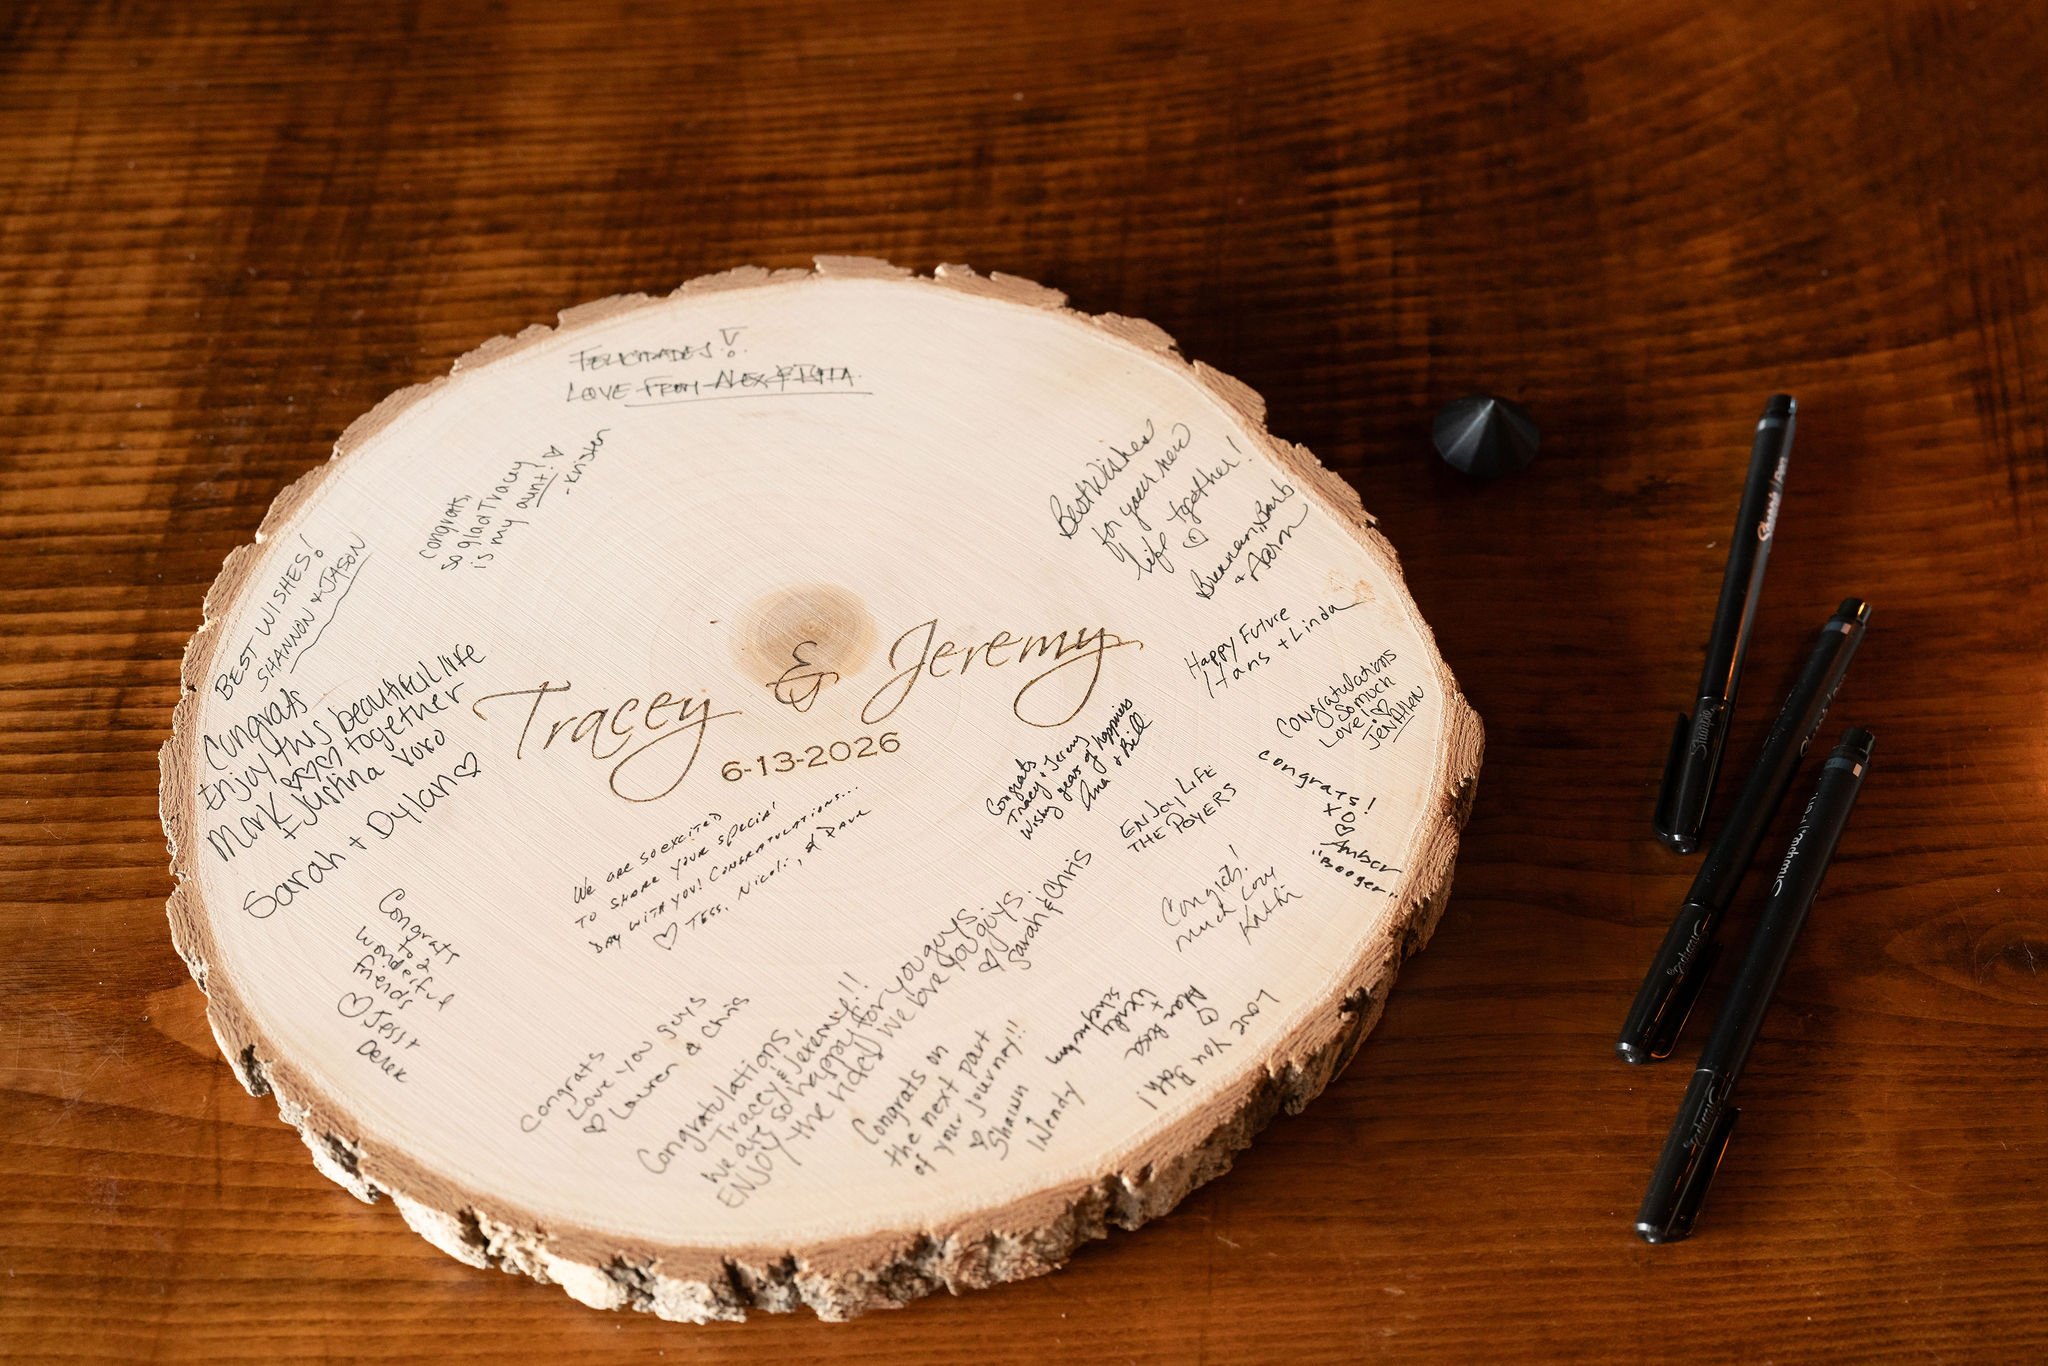 FELICIDADES!
LOVE FROM ALEX
Congrats,
so glad Tracey
is my aunt!
-Kristen
BEST WISHES!
SHANNON & JASON
Congrats
Enjoy this beautiful life
Mark together
+ Justina xoxo
Sarah + Dylan
Best Wishes
for your new
life together!
Brennan, Barb
+ Aaron
Happy Future
Hans + Linda
Tracey & Jeremy
6-13-2026
Congratulations
So much
Love!
Jen Allen
Congrats
Tracy + Jeremy
Wishing years of happiness
Ana + Bill
ENJOY LIFE
THE POYERS
Congrats!
XO
Amber
"Booger"
We are so excited
to share your special
day with you! Congratulations...
Tess, Nicoli, & Dave
Congrats!
Much Love
Congrats
to 2
wonderful
friends
Jess +
Derek
Congrats
Love you guys
Lauren & Chris
Congratulations
Tracey & Jeremy!!
We are so happy for you guys.
ENJOY the ride! We love you guys.
Sarah & Chris
Congrats on
the next part
of your journey!!
Shawn
Wendy
Love You Both!
Sharpie
Sharpie
Sharpie